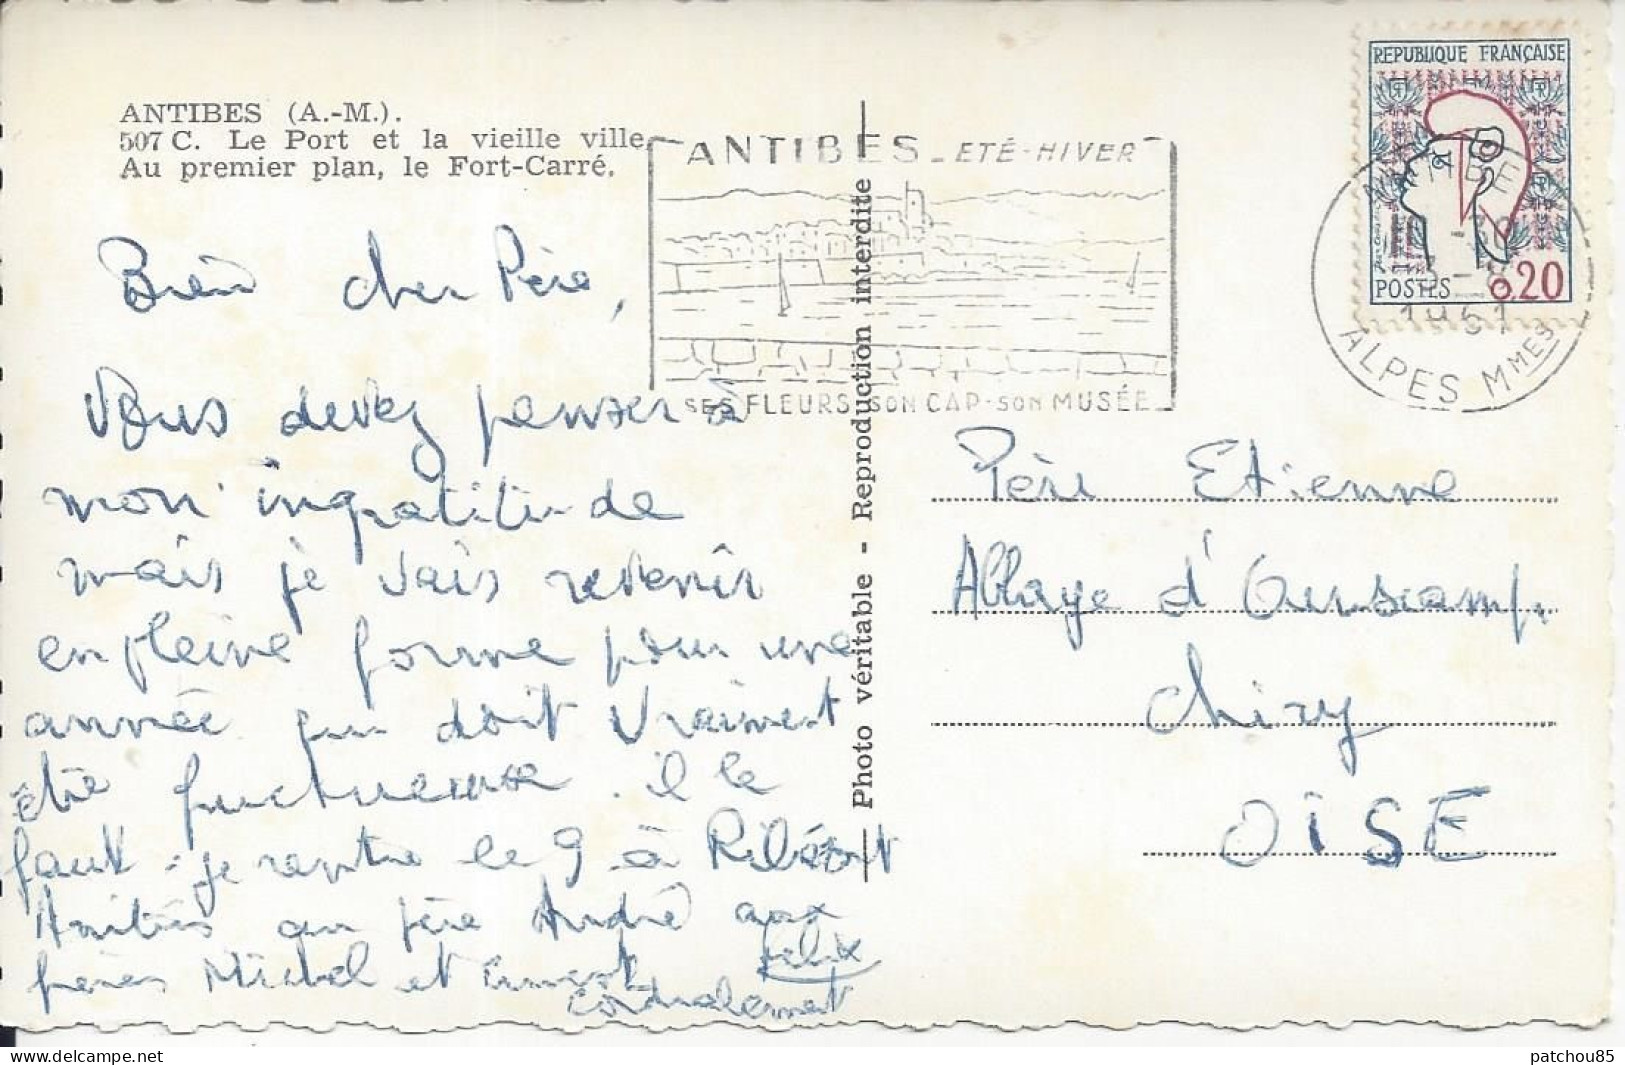 ANTIBES (A.-M.).
507 C. Le Port et la vieille ville.
Au premier plan, le Fort-Carré.
ANTIBES - ETÉ-HIVER
SES FLEURS SON CAP - SON MUSÉE
REPUBLIQUE FRANÇAISE
POSTES 0,20
ANTIBES
ALPES MMES
Photo véritable - Reproduction interdite
Bien cher Père,
Vous devez penser à
mon ingratitude
mais je vais revenir
en pleine forme pour une
année qui doit vraiment
être fructueuse. il le
faut. je rentre le 9 à Ribécourt
Amitiés au père André aux
frères Michel et Ernest
Félix
cordialement
Père Etienne
Abbaye d'Ourscamp.
Chiry
OISE
patchou85